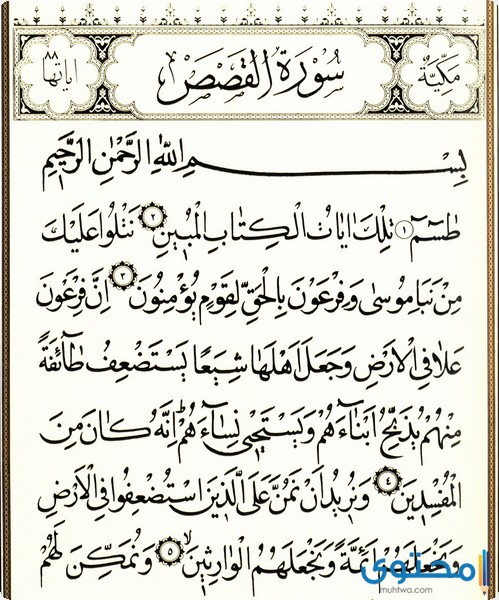 مَكِّيَّةٌ سُورَةُ الْقَصَصِ اٰيَاتُهَا ٨٨
بِسْمِ اللّٰهِ الرَّحْمٰنِ الرَّحٖيمِ
طٰسٓمٓ ١ تِلْكَ اٰيَاتُ الْكِتَابِ الْمُبٖينِ ٢ نَتْلُوا عَلَيْكَ
مِنْ نَبَأِ مُوسٰى وَفِرْعَوْنَ بِالْحَقِّ لِقَوْمٍ يُؤْمِنُونَ ٣ اِنَّ فِرْعَوْنَ
عَلَا فِي الْاَرْضِ وَجَعَلَ اَهْلَهَا شِيَعًا يَسْتَضْعِفُ طَٓائِفَةً
مِنْهُمْ يُذَبِّحُ اَبْنَٓاءَهُمْ وَيَسْتَحْيٖ نِسَٓاءَهُمْ اِنَّهُ كَانَ مِنَ
الْمُفْسِدٖينَ ٤ وَنُرٖيدُ اَنْ نَمُنَّ عَلَى الَّذٖينَ اسْتُضْعِفُوا فِي الْاَرْضِ
وَنَجْعَلَهُمْ اَئِمَّةً وَنَجْعَلَهُمُ الْوَارِثٖينَ ٥ وَنُمَكِّنَ لَهُمْ
محتوى
muhtwa.com